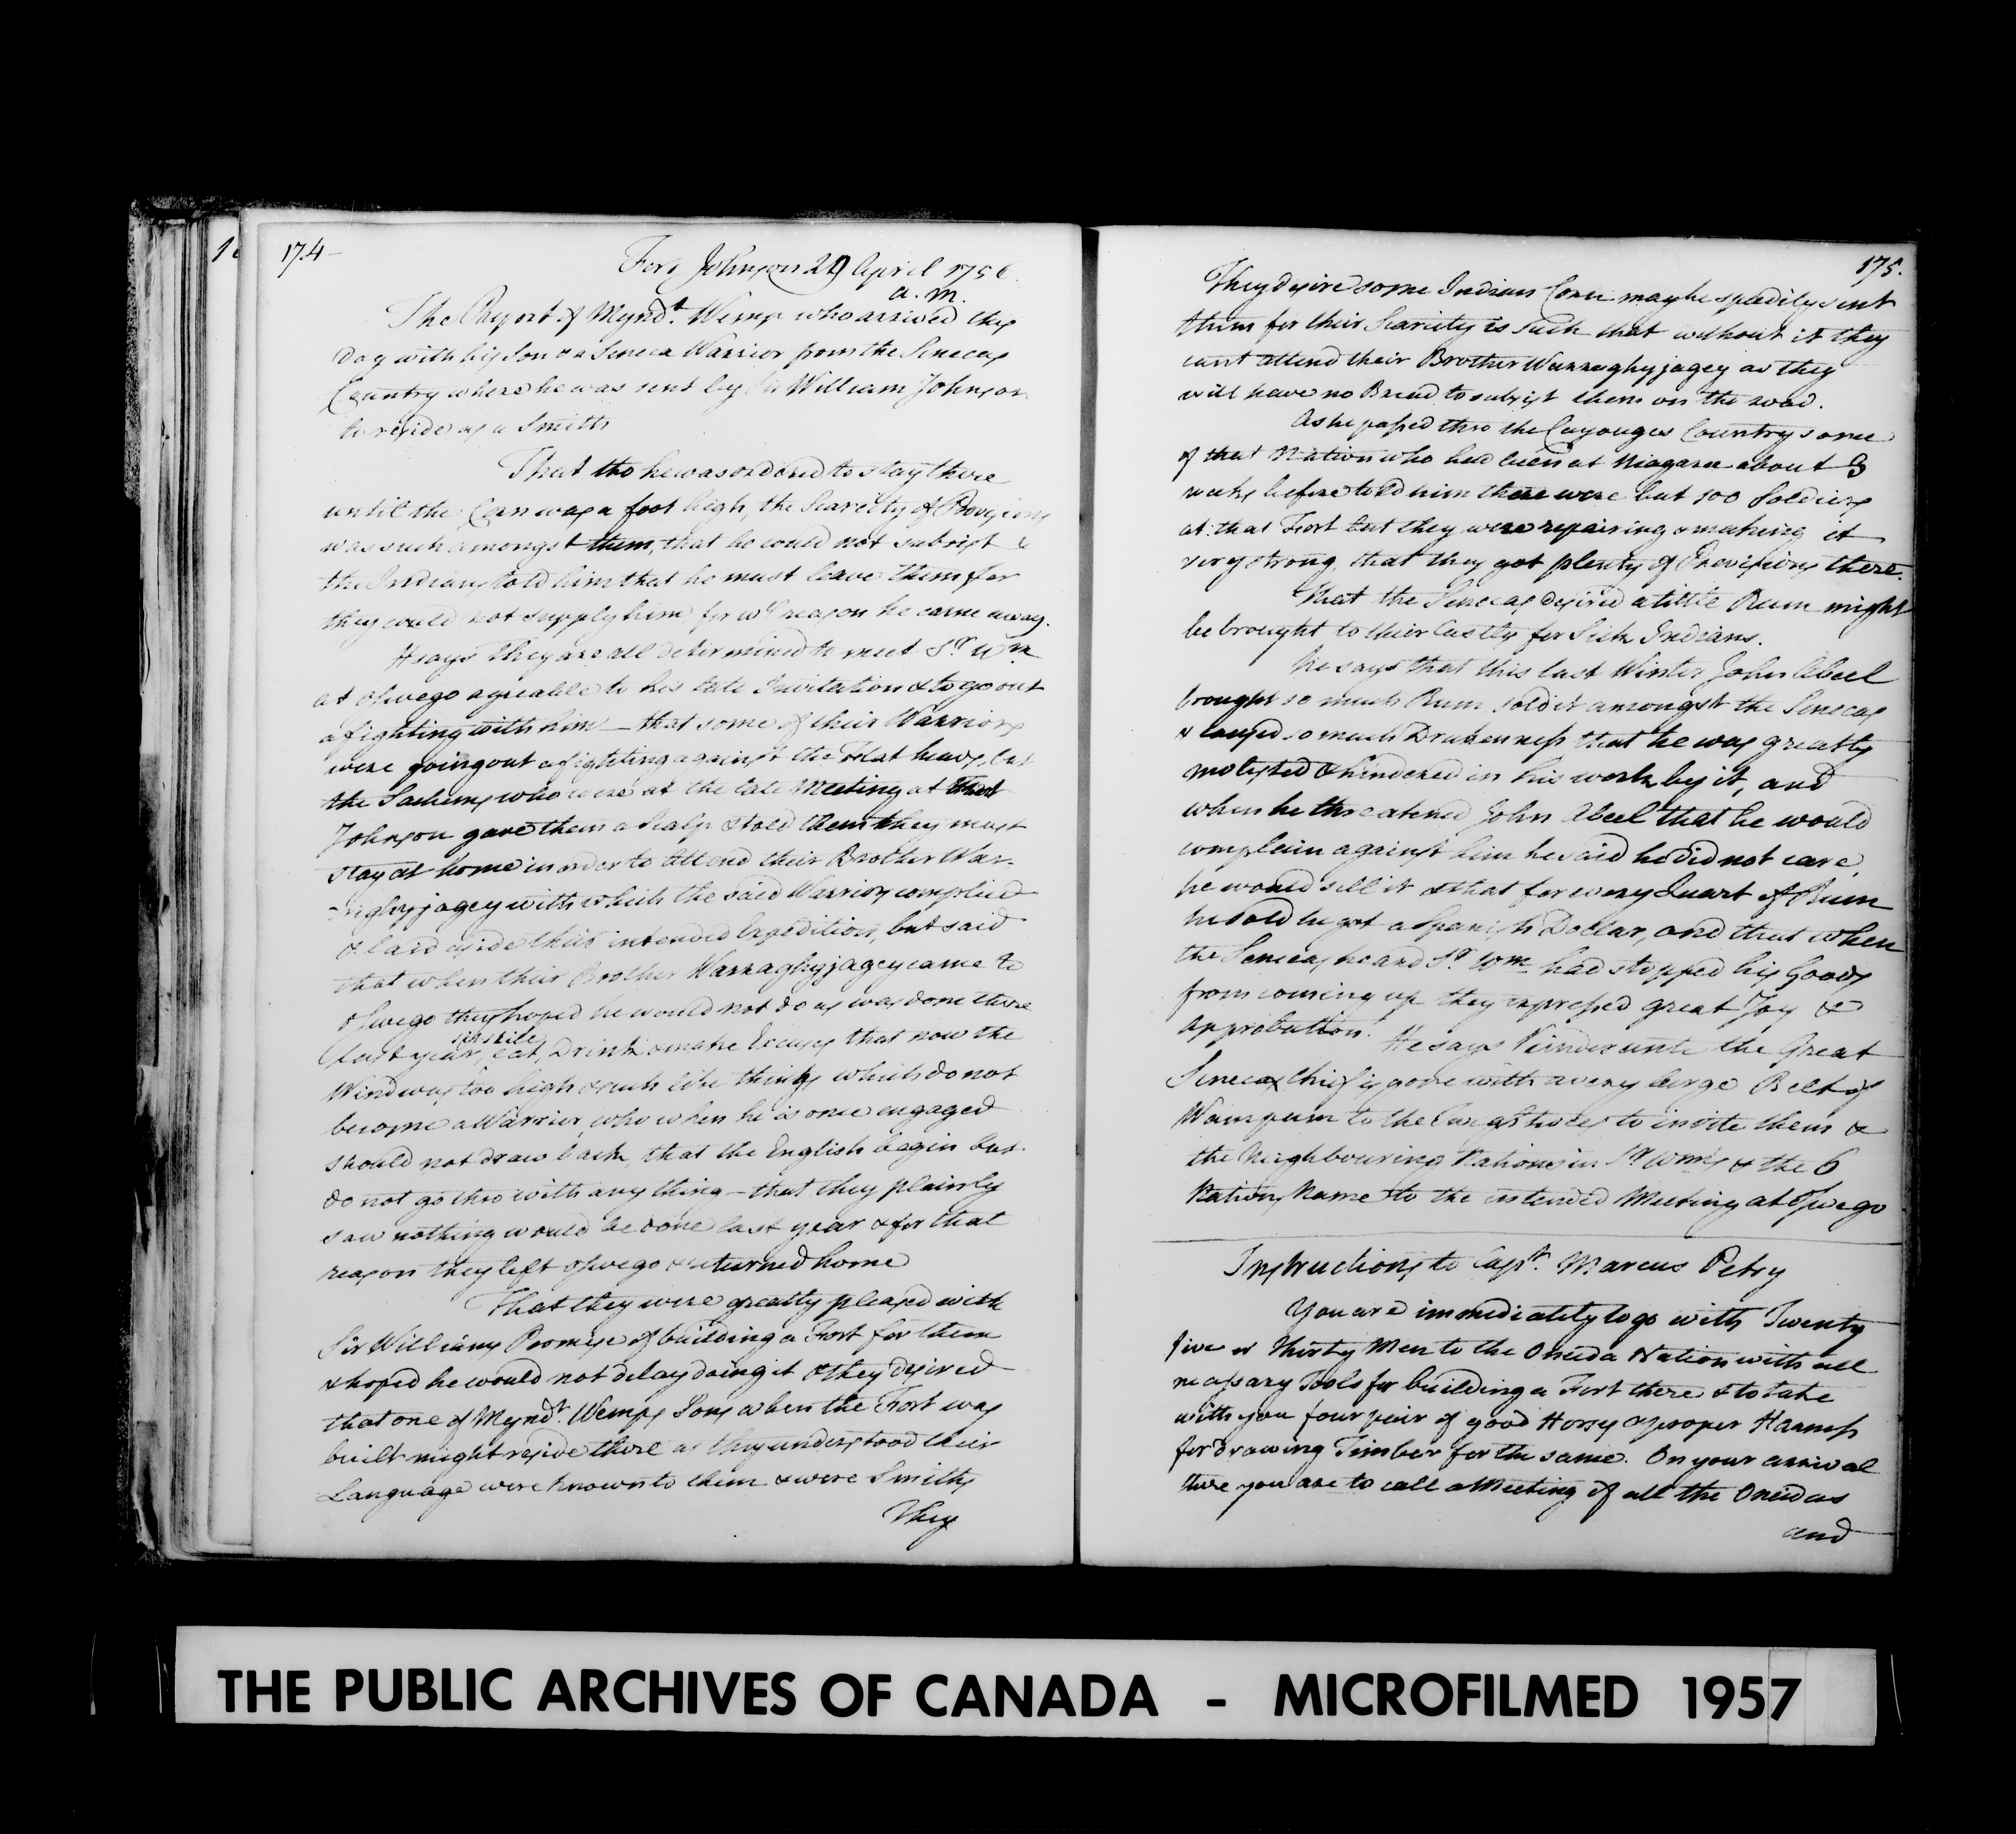 174
Fort Johnson 29 April 1756.
a. m.
The Report of Mynd.t Wemp who arrived this
Day with his Son & a Seneca Warrior from the Senecas
Country where he was sent by Sir William Johnson
to reside as a Smith
That tho he was ordered to stay there
until the Corn was a foot high, the Scarcity of Provisions
was such amongst them, that he could not subsist &
the Indians told him that he must leave them for
they could not supply him for wch reason he came away.
He says they are all determined to meet Sr. Wm.
at Oswego agreable to his late Invitation & to go out
a fighting with him — that some of their Warriors
were going out a fighting against the Flat heads, but
the Sachems who were at the late Meeting at Fort
Johnson gave them a Scalp & told them they must
stay at home in order to attend their Brother War-
raghyjagey with which the said Warriors complied
& laid aside their intended Expedition, but said
that when their Brother Warraghyjagey came to
Oswego they hoped he would not do as was done there
last year, eat, Drink & make Excuses that now the
Wind was too high & such like things which do not
become a Warrior, who when he is once engaged
should not draw back, that the English begin but
do not go thro with any thing — that they plainly
saw nothing would be done last year & for that
reason they left Oswego & returned home
That they were greatly pleased with
Sir Williams Promise of building a Fort for them
& hoped he would not delay doing it & they desired
that one of Mynd.t Wemps Sons when the Fort was
built might reside there as they understood their
Language were known to them & were Smiths
They
175.
They desire some Indian Corn may be speedily sent
them for their Scarcity is such that without it they
cant attend their Brother Warraghyjagey as they
will have no Bread to subsist them on the road.
As he passed thro the Cayouges Country some
of that Nation who had been at Niagara about 3
weeks before told him there were but 100 Soldiers
at that Fort but they were repairing & making it
very strong, that they got plenty of Provisions there.
That the Senecas desired a little Rum might
be brought to their Castle for Sick Indians.
He says that this last Winter John Abeel
brought so much Rum sold it amongst the Senecas
& caused so much Drukenness that he was greatly
molested & hindered in his work by it, and
when he threatened John Abeel that he would
complain against him he said he did not care,
he would sell it & that for every Quart of Rum
he sold he got a Spanish Dollar, and that when
the Senecas heard Sr. Wm. had stopped his Goods
from coming up they expressed great Joy &
Approbation. He says the Great
Seneca Chief is gone with a very large Belt of
Wampum to the to invite them &
the Neighbouring Nations in Sr. Wms. & the 6
Nations Name to the intended Meeting at Oswego
Instructions to Capt. Marcus Petry
You are immediately to go with Twenty
five or Thirty Men to the Oneida Nation with all
necessary Tools for building a Fort there & to take
with you four pair of good Horses & proper Harness
for drawing Timber for the same. On your arrival
there you are to call a Meeting of all the Oneidas
and
THE PUBLIC ARCHIVES OF CANADA - MICROFILMED 1957